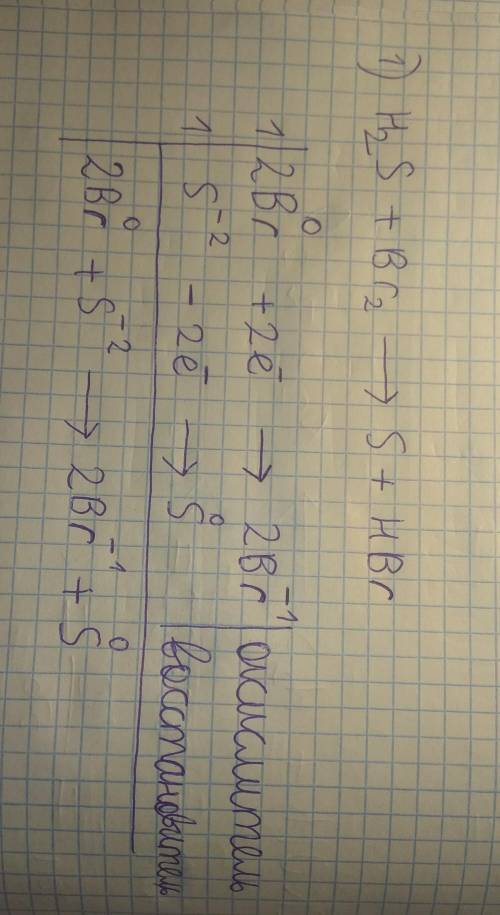 1) H₂S + Br₂ → S + HBr
1 | 2Br⁰ +2e⁻ → 2Br⁻¹ | окислитель
1 | S⁻² - 2e⁻ → S⁰ | восстановитель
2Br⁰ + S⁻² → 2Br⁻¹ + S⁰